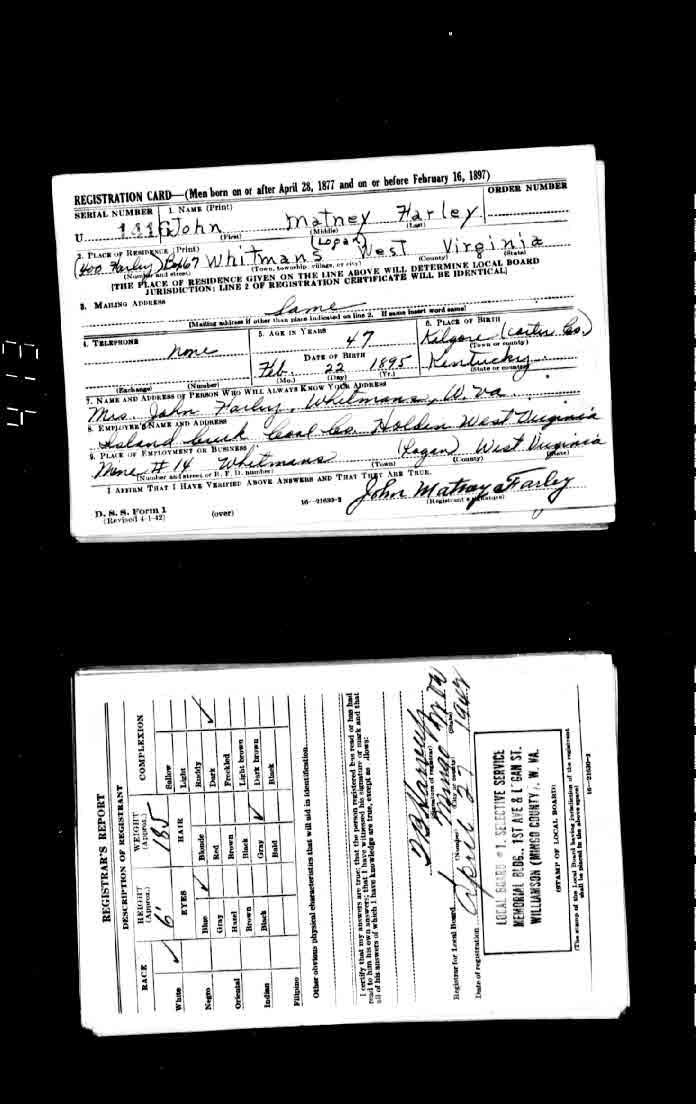 REGISTRATION CARD—(Men born on or after April 28, 1877 and on or before February 16, 1897)
SERIAL NUMBER
1. NAME (Print)
ORDER NUMBER
U
John Matney Farley
(First) (Middle) (Last)
2. PLACE OF RESIDENCE (Print)
(Logan)
(400 Farley) Box 67 Whitmans West Virginia
(Number and street) (Town, township, village, or city) (County) (State)
[THE PLACE OF RESIDENCE GIVEN ON THE LINE ABOVE WILL DETERMINE LOCAL BOARD
JURISDICTION; LINE 2 OF REGISTRATION CERTIFICATE WILL BE IDENTICAL]
3. MAILING ADDRESS
Same
[Mailing address if other than place indicated on line 2. If same insert word same]
4. TELEPHONE
none
(Exchange) (Number)
5. AGE IN YEARS
47
DATE OF BIRTH
Feb. 22 1895
(Mo.) (Day) (Yr.)
6. PLACE OF BIRTH
Kilgore (Carter Co.)
(Town or county)
Kentucky
(State or country)
7. NAME AND ADDRESS OF PERSON WHO WILL ALWAYS KNOW YOUR ADDRESS
Mrs. John Farley, Whitmans, W. Va
8. EMPLOYER'S NAME AND ADDRESS
Island Creek Coal Co. Holden West Virginia
9. PLACE OF EMPLOYMENT OR BUSINESS
Mine # 14 Whitmans (Logan) West Virginia
(Number and street or R. F. D. number) (Town) (County) (State)
I AFFIRM THAT I HAVE VERIFIED ABOVE ANSWERS AND THAT THEY ARE TRUE.
John Matney Farley
(Registrant's signature)
D. S. S. Form 1
(Revised 4-1-42)
(over)
16—21630-2
REGISTRAR'S REPORT
DESCRIPTION OF REGISTRANT
RACE
HEIGHT
(Approx.)
WEIGHT
(Approx.)
COMPLEXION
6'
185
EYES
HAIR
White
Negro
Oriental
Indian
Filipino
Blue
Gray
Hazel
Brown
Black
Blonde
Red
Brown
Black
Gray
Bald
Sallow
Light
Ruddy
Dark
Freckled
Light brown
Dark brown
Black
Other obvious physical characteristics that will aid in identification
I certify that my answers are true; that the person registered has read or has had
read to him his own answers; that I have witnessed his signature or mark and that
all of his answers of which I have knowledge are true, except as follows:
(Signature of registrar)
Registrar for Local Board 1 Mingo W Va
(Number) (City or county) (State)
Date of registration April 27 1942
LOCAL BOARD #1, SELECTIVE SERVICE
MEMORIAL BLDG., 1ST AVE & LOGAN ST.
WILLIAMSON (MINGO COUNTY), W. VA.
(STAMP OF LOCAL BOARD)
(The stamp of the Local Board having jurisdiction of the registrant
shall be placed in the above space)
16—21630-2